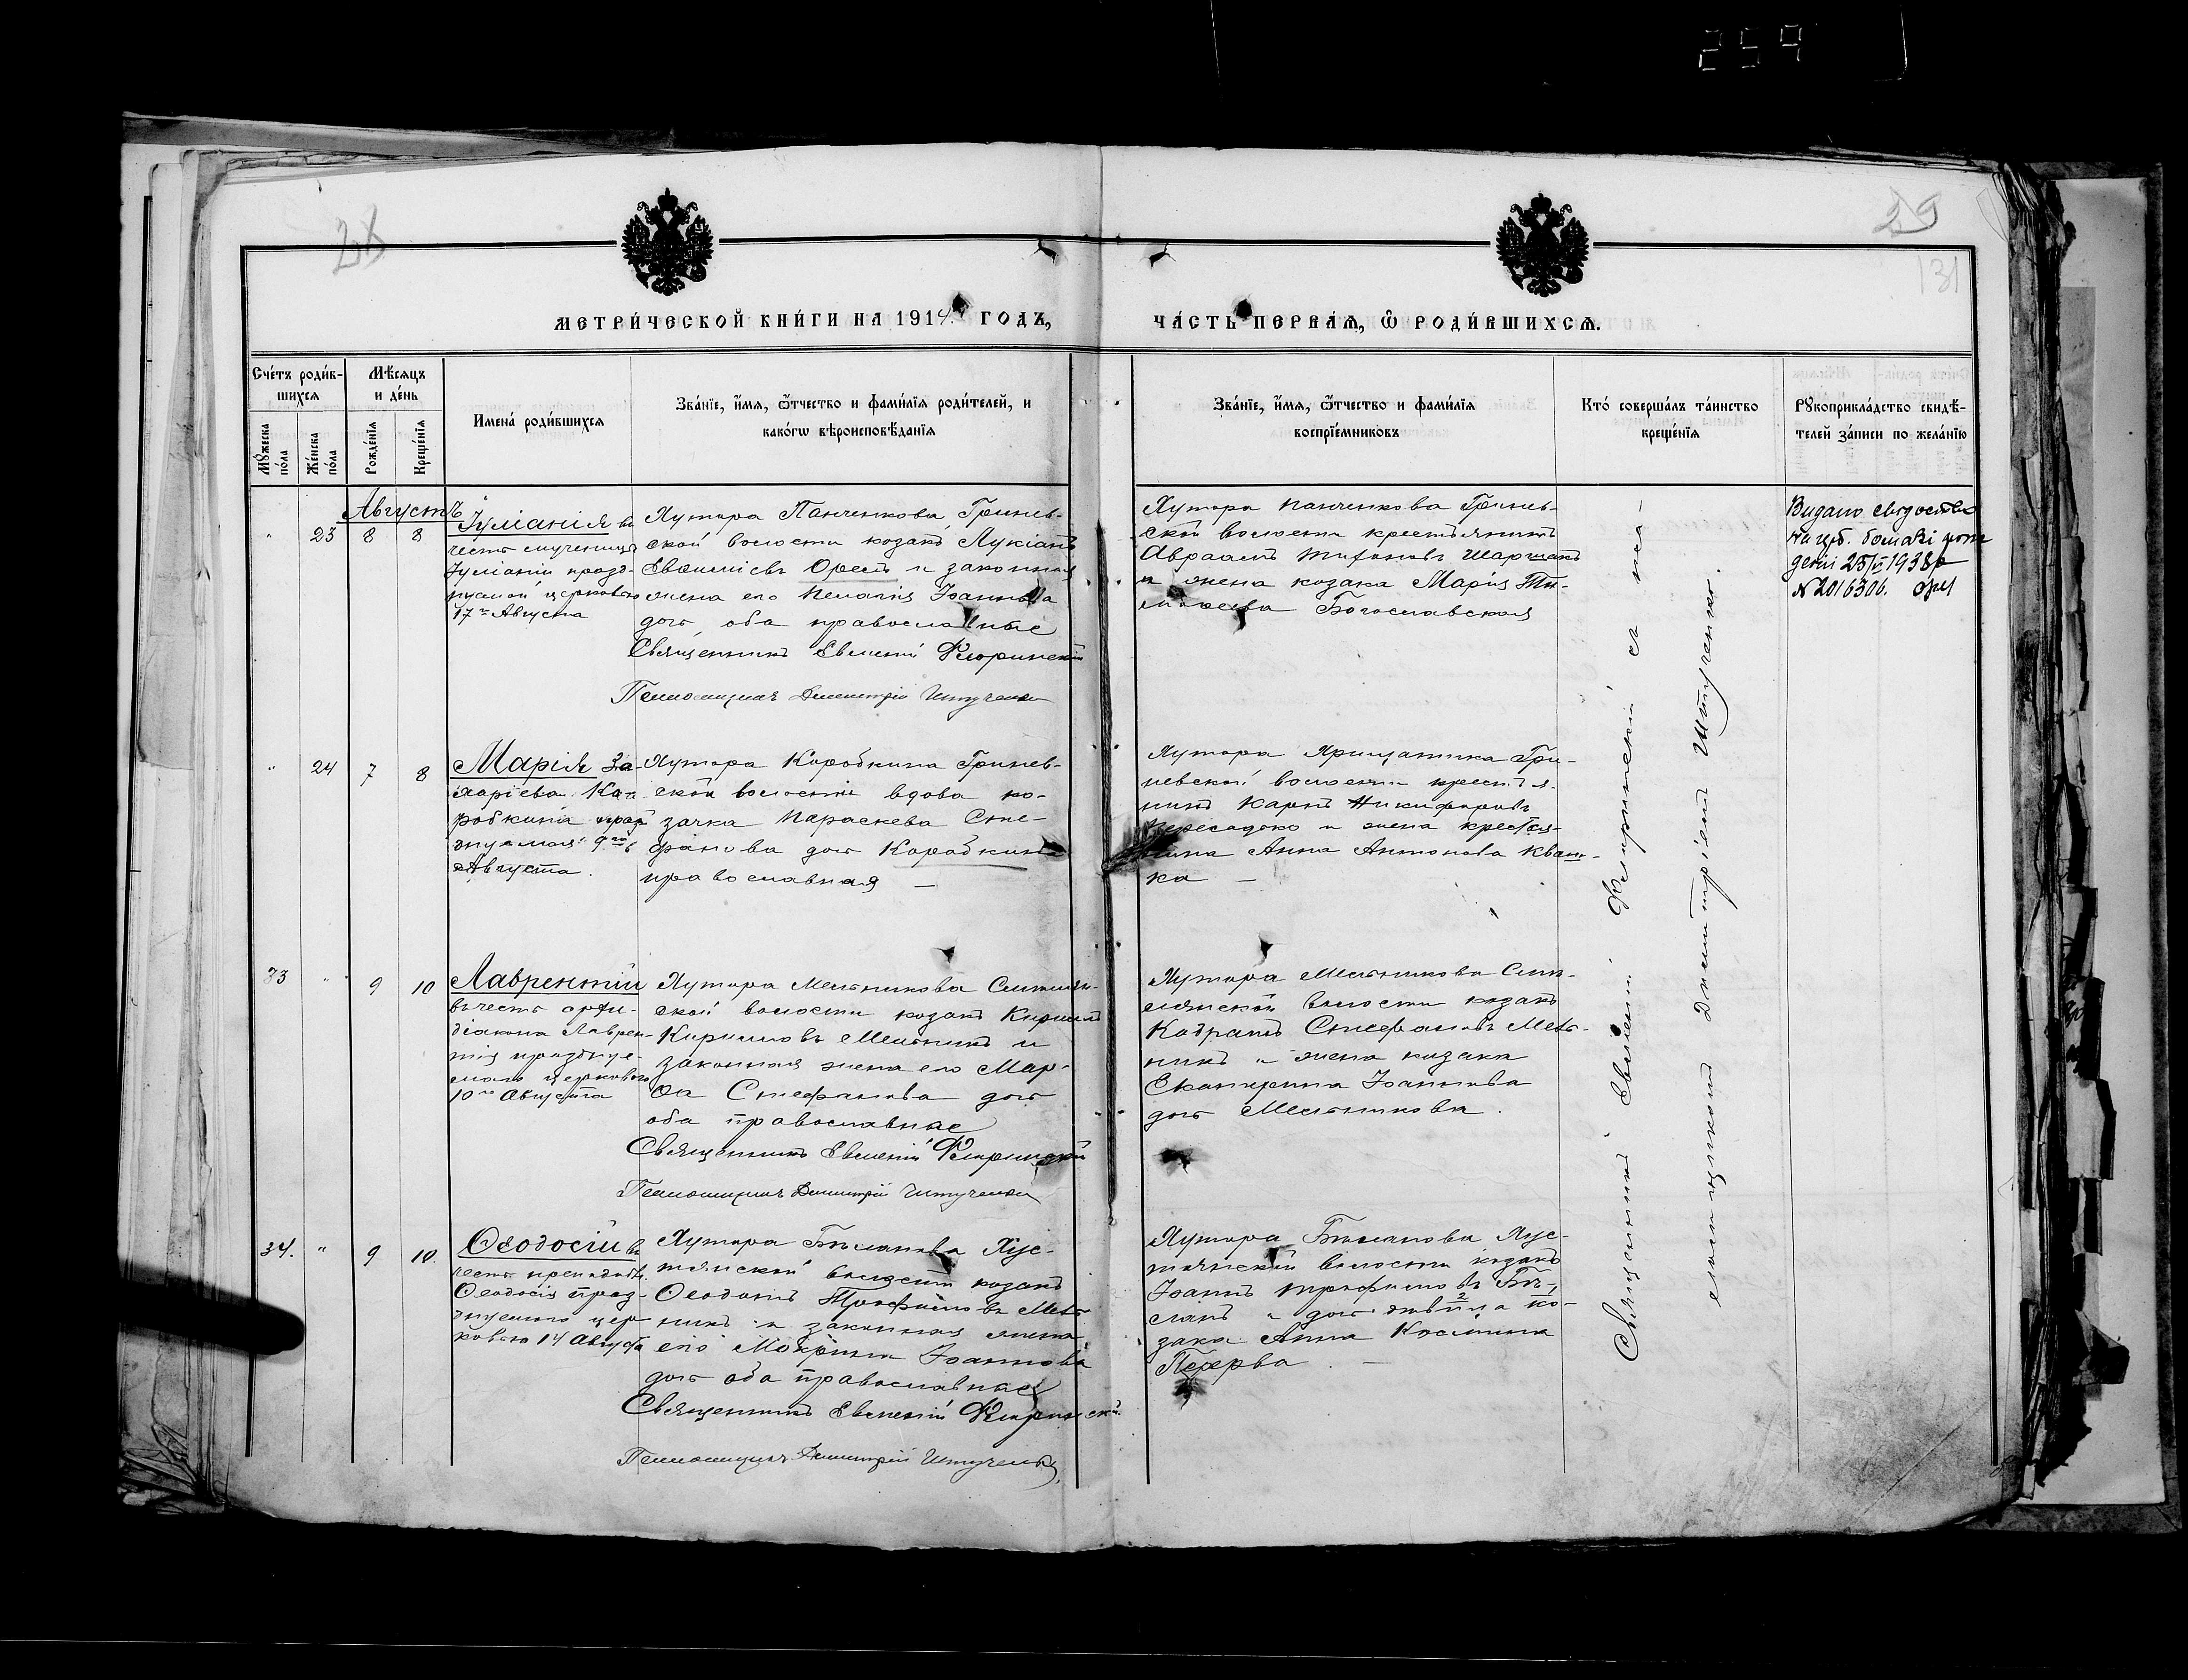 259
28
29
131
МЕТРИ́ЧЕСКОЙ КНИ́ГИ НА 1914 ГОДЪ,
ЧА́СТЬ ПЕРВА́Ѧ, Ѽ РОДИ́ВШИХСѦ.
Сче́тъ роди́в-
шихсѧ
Мѣ́сѧцъ
и де́нь
Мꙋ́жеска
по́ла
Же́нска
по́ла
Рожде́нїѧ
Креще́нїѧ
Имена́ роди́вшихсѧ
Зва́нїе, и́мѧ, ѻ҆́тчество и фами́лїѧ роди́телей, и
како́гѡ вѣроисповѣ́данїѧ
Зва́нїе, и́мѧ, ѻ҆́тчество и фами́лїѧ
воспрїе́мниковъ
Кто́ соверша́лъ та́инство
креще́нїѧ
Рꙋкоприкла́дство свидѣ́-
телей за́писи по жела́нїю
Августъ
" 23 8 8
Іуліанія въ
честь мученицы
Іуліаніи празд-
нуемой церковью
17го Августа
Хутора Панченкова, Гринев-
ской волости козакъ Лукіанъ
Евѳиміевъ Орелъ и законная
жена его Пелагія Іоаннова
дочь, оба православные
Священникъ Евгеній Флоринскій
Псаломщикъ Димитрій Штученко
Хутора Панченкова Гринев-
ской волости крестьянинъ
Авраамъ
и жена козака Марія Ти-
Богославская
Видано свідоство
25/VI 1938р
N 2016306.
" 24 7 8
Марія За-
харіева Ко-
робкина празд
днуемая 9го
Августа.
Хутора Коробкина Гринев-
ской волости вдова ко-
зачка Параскева Сте-
фанова дочь Коробкина
православная —
Хутора Ярищатника Гри-
невской волости крестья-
нинъ Карпъ Никифоровъ
Пересадько и жена крестья-
нина Анна Антонова Кваш-
ка —
33 " 9 10
Лаврентій
въ честь архи-
діакона Лаврен-
тія праздну-
емаго церковью
10го Августа
Хутора Мельникова
ской волости козакъ Кириллъ
Кирилловъ Мельникъ и
законная жена его Мар-
ѳа Стефанова дочь
оба православные
Священникъ Евгеній Флоринскій
Псаломщикъ Димитрій Штученко
Хутора Мельникова
волости козакъ
Кодратъ Стефановъ Мель-
никъ и жена козака
Екатерина Іоаннова
дочь Мельникова.
34. " 9 10.
Ѳеодосій въ
честь преподобн.
Ѳеодосія празд-
днуемаго цер
ковью 14 Августа
Хутора Бѣланова Хус-
тянской волости козакъ
Ѳеодотъ Трофимовъ Мель
никъ и законная жена
его Мокрина Іоаннова
дочь оба православные
Священникъ Евгеній Флоринскій
Псаломщикъ Димитрій Штученко
Хутора Бѣланова Хус-
тянской волости козакъ
Іоаннъ Трофимовъ Бѣ-
ланъ и дочь дѣвица ко-
зака Анна Косьмина
Перерва. —
Священникъ Евгеній Флоринскій съ пса-
ломщикомъ Димитріемъ Штученко.